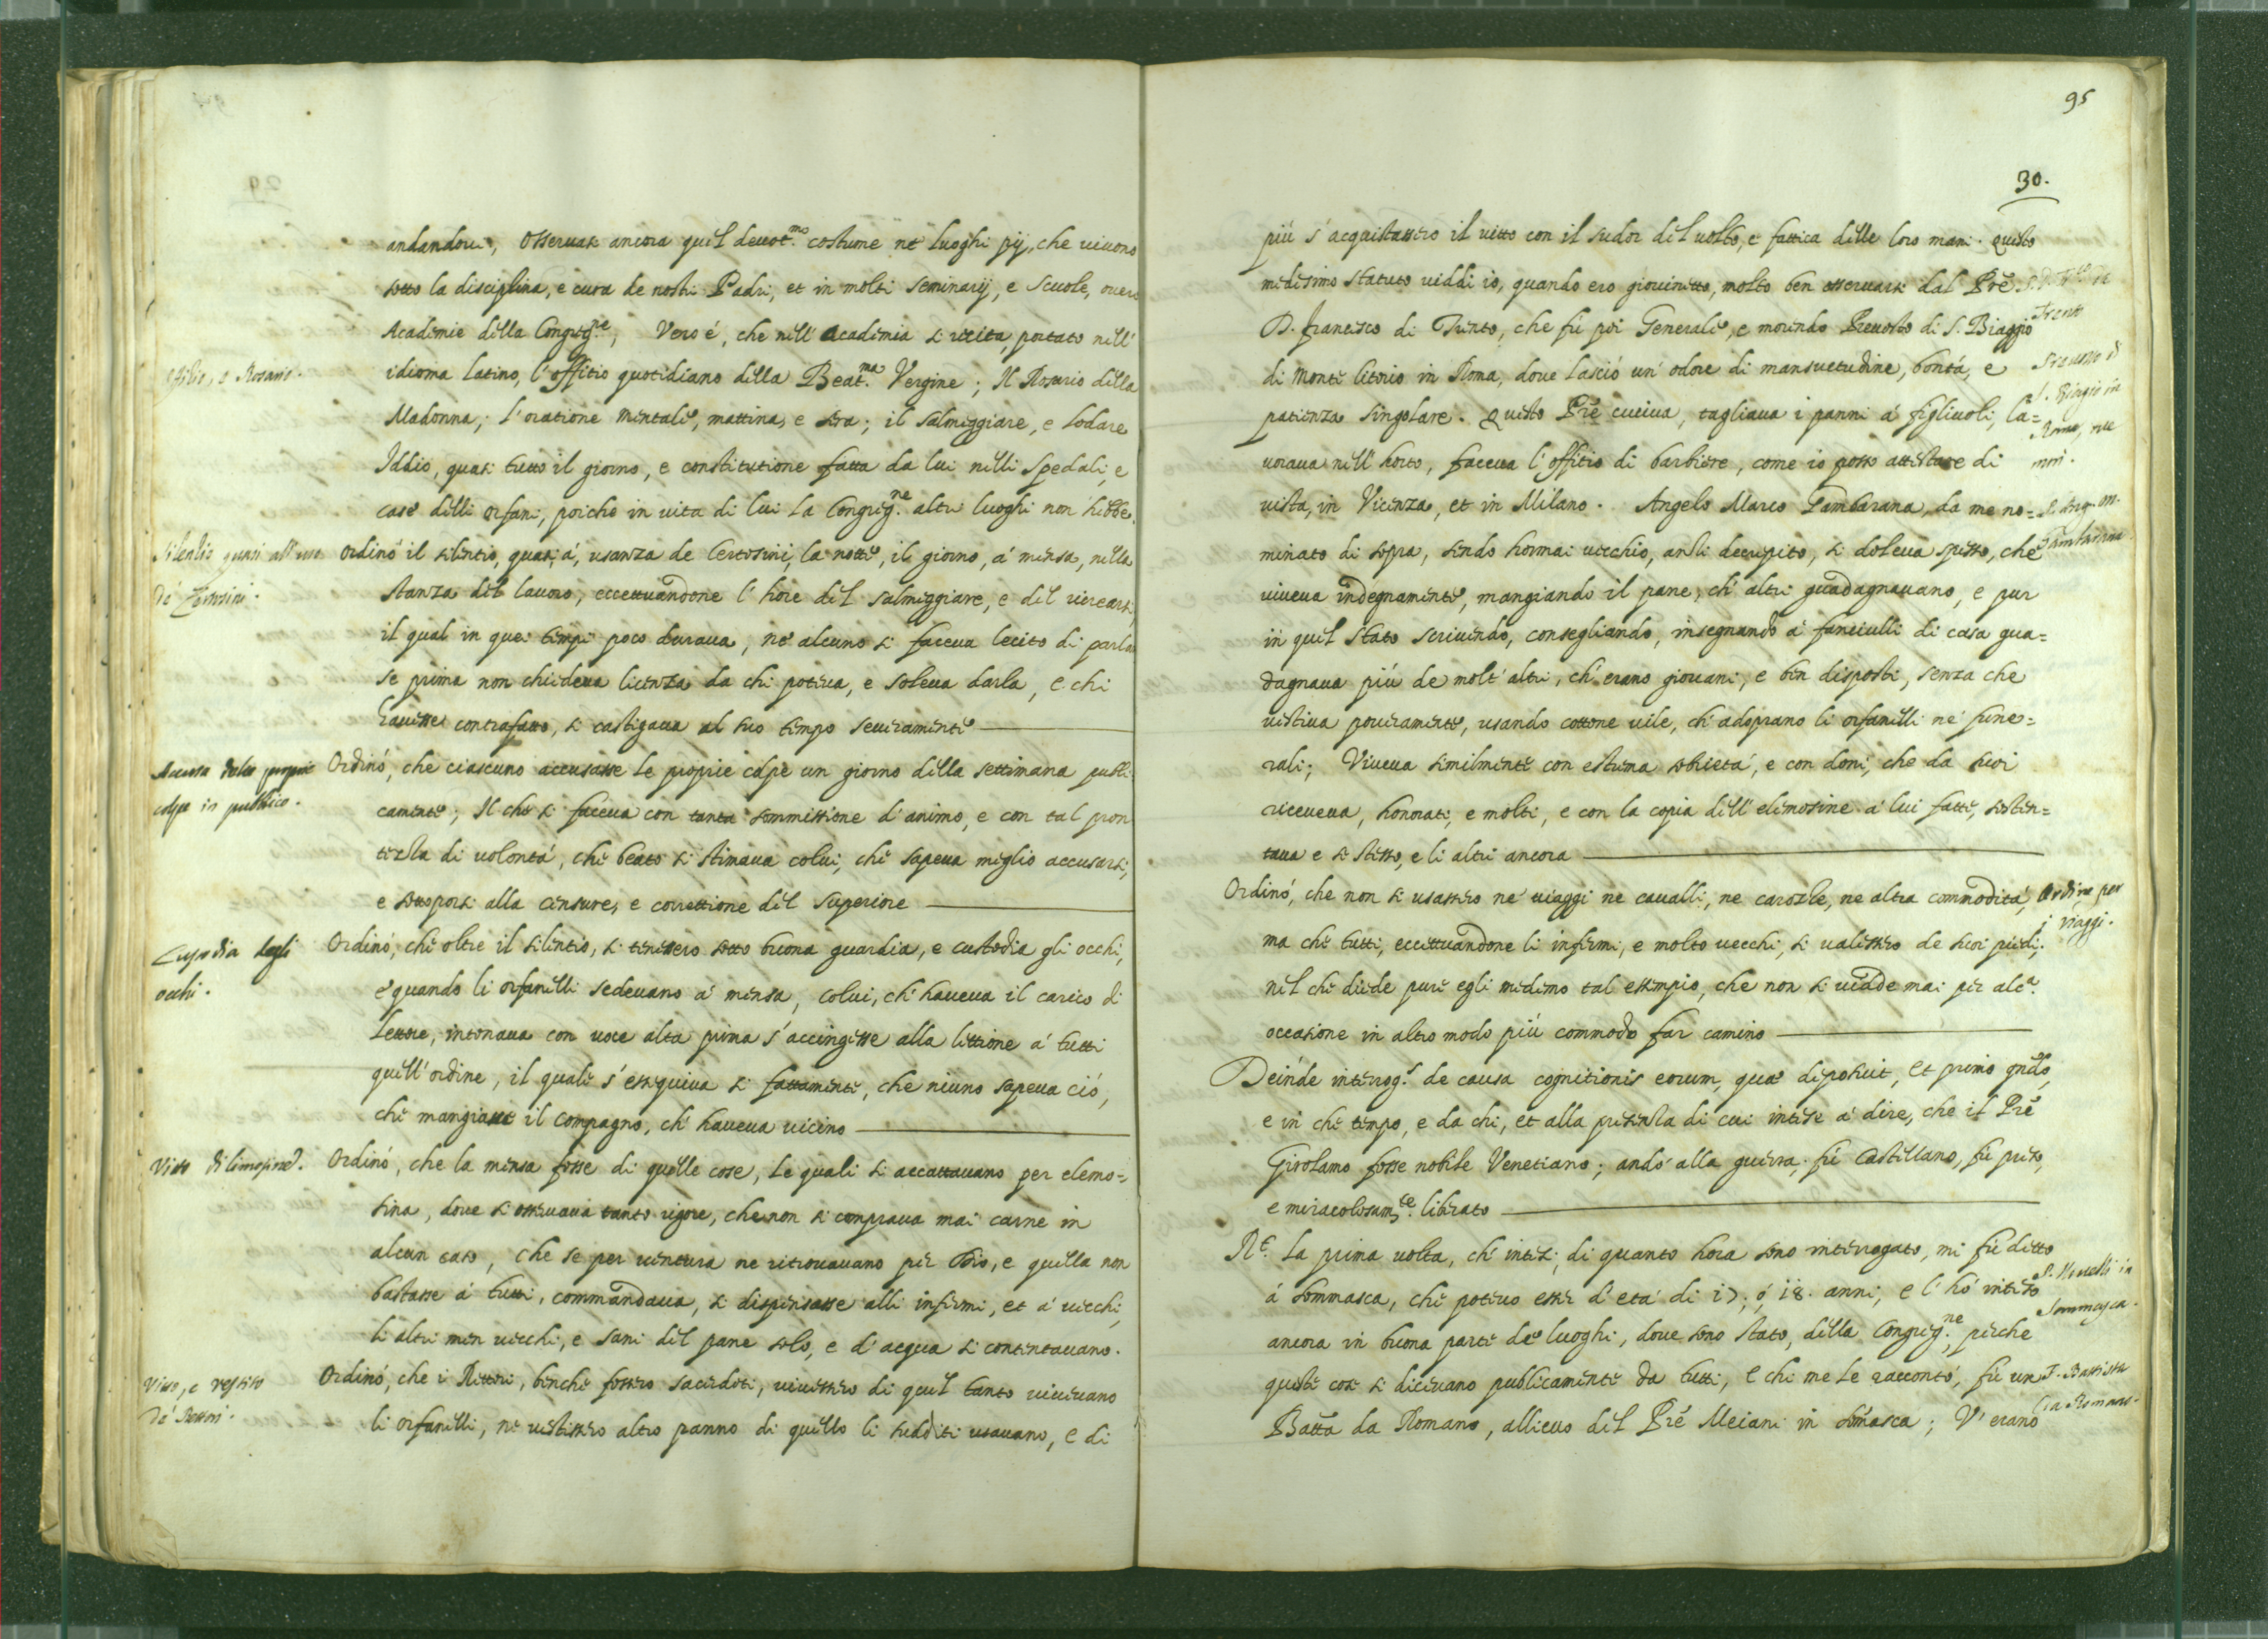 andandovi, Osservasi ancora quel devot.mo costume ne luoghi pij, che vivono
sotto la disciplina, e cura de nostri Padri, et in molti seminarij, e scuole, overo
Academie della Congreg.ne, Vero é, che nell' Academia si recita, portato nell'
offitio, e Rosario.
idioma latino, l'offitio quotidiano della Beat.ma Vergine; Il Rosario della
Madonna; l'oratione mentale, mattina, e sera; il salmeggiare, e lodare
Iddio, quasi tutto il giorno, e constitutione fatta da lui nelli spedali, e
case delli orfani, poiche in vita di lui la Congreg.ne altri luoghi non hebbe.
Silentio quasi all'uso
de Certosini.
Ordinó il silentio, quasi, á, usanza de Certosini, la notte, il giorno, á mensa, nella
stanza del lavoro, eccettuandone l'hore del salmeggiare, e del ricrearsi,
il qual in quei tempi poco durava, né alcuno si faceva lecito di parla
se prima non chiedeva licenza da chi poteva, e soleva darla, e chi
havesse contrafatto, si castigava al suo tempo severamente
Accusa delle proprie
colpe in publico.
Ordinó, che ciascuno accusasse le proprie colpe un giorno della settimana publi
camente; Il che si faceva con tanta sommissione d'animo, e con tal pron
tezza di volontá, che beato si stimava colui, che sapeva meglio accusarsi,
e sottoporsi alla censure, e correttione del superiore
Custodia degli
occhi.
Ordinó, che oltre il silentio, si tenessero sotto buona guardia, e custodia gli occhi,
e quando li orfanelli sedevano á mensa, colui, ch'haveva il carico di
lettore, intonava con voce alta prima s'accingesse alla lettione á tutti
quell'ordine, il quale s'esseguiva si fattamente, che niuno sapeva ció,
che mangiasse il compagno, ch'haveva vicino
Vitto di limosine.
Ordinó, che la mensa fosse di quelle cose, le quali si accattavano per elemo=
sina, dove si osservava tanto rigore, che non si comprava mai carne in
alcun caso, che se per ventura ne ritrovavano per Dio, e quella non
bastasse á tutti, commandava, si dispensasse alli infermi, et á vecchi,
li altri men vecchi, e sani del pane solo, e d'acqua si contentavano.
Vitto, e vestito
de' Rettori.
Ordinó, che i Rettori, benche fossero sacerdoti, vivessero di quel tanto vivevano
li orfanelli, ne vestissero altro panno di quello li sudditi usavano, e di
95
30.
piú s'acquistassero il vitto con il sudor del volto, e fattica delle loro mani. Questo
medesimo statuto viddi io, quando ero giovinetto, molto ben osservarsi dal Pre
D. Francesco di Trento, che fú poi Generale, e morendo Prevosto di S. Biaggio
Trento
di monte Citorio in Roma, dove lasció un'odore di mansuetudine, bontá, e
Prevosto di
S. Biagio in
patienza singolare. Questo Pre cuciva, tagliava i panni á figliuoli, la=
Roma, ove
vorava nell'horto, faceva l'offitio di barbiere, come io posso attestare di
morì.
vista, in Vicenza, et in Milano. Angelo Marco Gambarana, da me no=
P. Ang. M.
Gambarana.
minato di sopra, sendo hormai vecchio, anzi decrepito, si doleva spesso, che
viveva indegnamente, mangiando il pane, ch'altri guadagnavano, e pur
in quel stato scrivendo, consegliando, insegnando á fanciulli di casa gua=
dagnava piú de molt'altri, ch'erano giovani, e ben disposti, senza che
vestiva poveramente, usando cottone vile, ch'adoprano li orfanelli ne fune=
rali; Viveva similmente con estrema sobrietá, e con doni, che da suoi
riceveva, honorati, e molti, e con la copia dell'elemosine á lui fatte, sosten=
tava e si stesso, e li altri ancora
Ordinó, che non si usassero ne viaggi ne cavalli, ne carozze, ne altra commoditá,
Ordine per
i viaggi.
ma che tutti, eccettuandone li infermi, e molto vecchi, si valessero de suoi piedi;
nel che diede pure egli medemo tal essempio, che non si vidde mai per alc.a
occasione in altro modo piú commodo far camino
Deinde interrog.s de causa cognitionis eorum, quæ deposuit, et primo qndo,
e in che tempo, e da chi, et alla presenza di cui intese á dire, che il Pre
Girolamo fosse nobile Venetiano; andó alla guerra; fú Castellano, fú preso,
e miracolosam.te liberato
R.t La prima volta, ch'intesi, di quanto hora sono interrogato, mi fú detto
P. Novelli in
Sommasca.
á Sommasca, che potevo esser d'etá di 17, ó, 18. anni, e l'hó inteso
ancora in buona parte de luoghi, dove sono stato, della Congreg.ne, perche
queste cose si dicevano publicamente da tutti, e chi me le raccontó, fú un
F. Battista
da Romano.
Batta da Romano, allievo del Pre Meiani in Somasca; V'erano